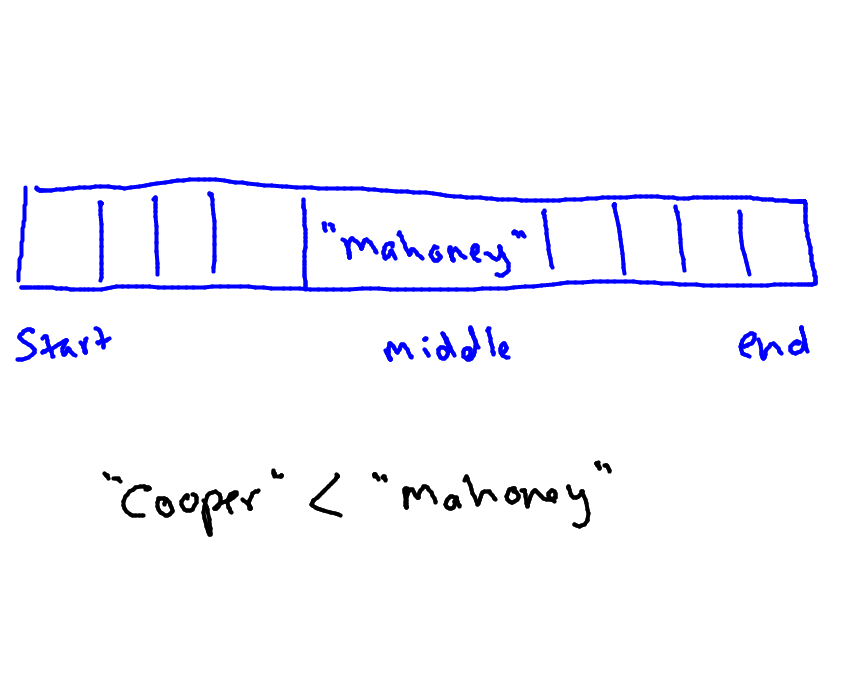 "mahoney"
Start middle end
"Cooper" < "mahoney"